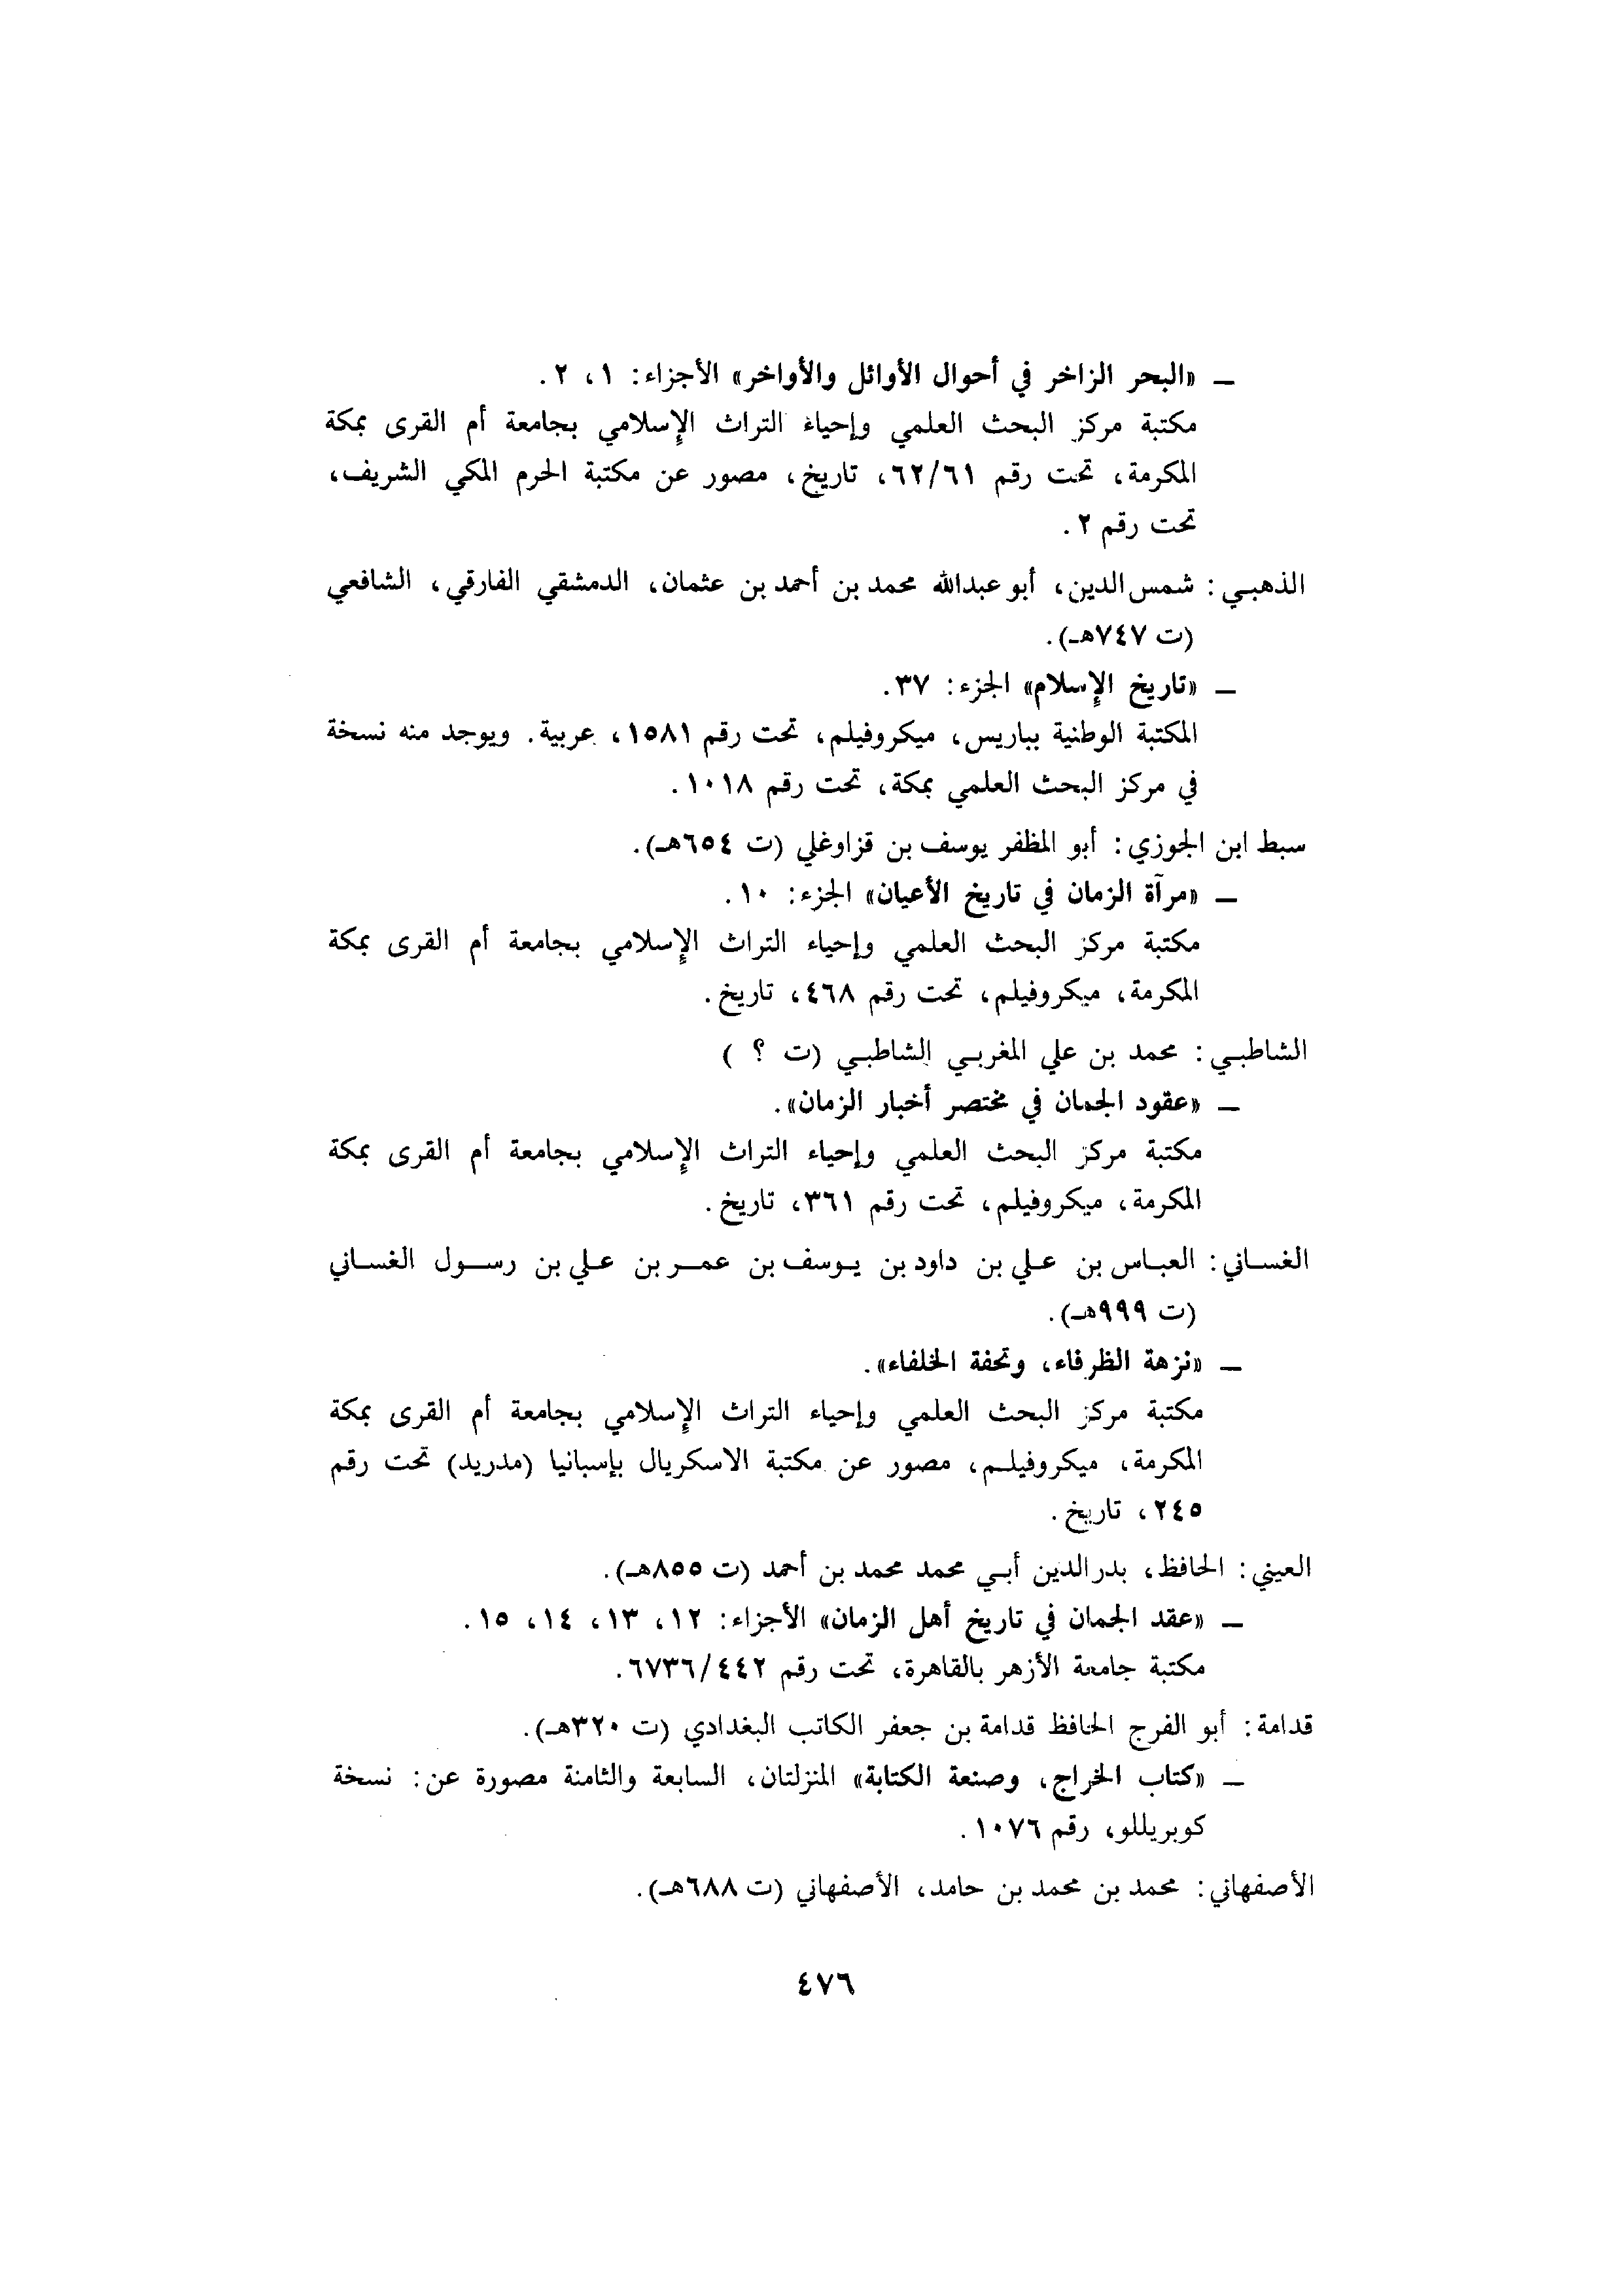 ــ «البحر الزاخر في أحوال الأوائل والأواخر» الأجزاء: ١، ٢.
مكتبة مركز البحث العلمي وإحياء التراث الإسلامي بجامعة أم القرى بمكة
المكرمة، تحت رقم ٦٢/٦١، تاريخ، مصور عن مكتبة الحرم المكي الشريف،
تحت رقم ٢.
الذهبي: شمس الدين، أبو عبدالله محمد بن أحمد بن عثمان، الدمشقي الفارقي، الشافعي
(ت ٧٤٧هـ).
ــ «تاريخ الإسلام» الجزء: ٣٧.
المكتبة الوطنية بباريس، ميكروفيلم، تحت رقم ١٥٨١، عربية. ويوجد منه نسخة
في مركز البحث العلمي بمكة، تحت رقم ١٠١٨.
سبط ابن الجوزي: أبو المظفر يوسف بن قزاوغلي (ت ٦٥٤هـ).
ــ «مرآة الزمان في تاريخ الأعيان» الجزء: ١٠.
مكتبة مركز البحث العلمي وإحياء التراث الإسلامي بجامعة أم القرى بمكة
المكرمة، ميكروفيلم، تحت رقم ٤٦٨، تاريخ.
الشاطبي: محمد بن علي المغربي الشاطبي (ت ؟ )
ــ «عقود الجمان في مختصر أخبار الزمان».
مكتبة مركز البحث العلمي وإحياء التراث الإسلامي بجامعة أم القرى بمكة
المكرمة، ميكروفيلم، تحت رقم ٣٦١، تاريخ.
الغساني: العباس بن علي بن داود بن يوسف بن عمر بن علي بن رسول الغساني
(ت ٩٩٩هـ).
ــ «نزهة الظرفاء، وتحفة الخلفاء».
مكتبة مركز البحث العلمي وإحياء التراث الإسلامي بجامعة أم القرى بمكة
المكرمة، ميكروفيلم، مصور عن مكتبة الاسكريال بإسبانيا (مدريد) تحت رقم
٢٤٥، تاريخ.
العيني: الحافظ، بدر الدين أبي محمد محمد بن أحمد (ت ٨٥٥هـ).
ــ «عقد الجمان في تاريخ أهل الزمان» الأجزاء: ١٢، ١٣، ١٤، ١٥.
مكتبة جامعة الأزهر بالقاهرة، تحت رقم ٦٧٣٦/٤٤٢.
قدامة: أبو الفرج الحافظ قدامة بن جعفر الكاتب البغدادي (ت ٣٢٠هـ).
ــ «كتاب الخراج، وصنعة الكتابة» المنزلتان، السابعة والثامنة مصورة عن: نسخة
كوبريللو، رقم ١٠٧٦.
الأصفهاني: محمد بن محمد بن حامد، الأصفهاني (ت ٦٨٨هـ).
٤٧٦